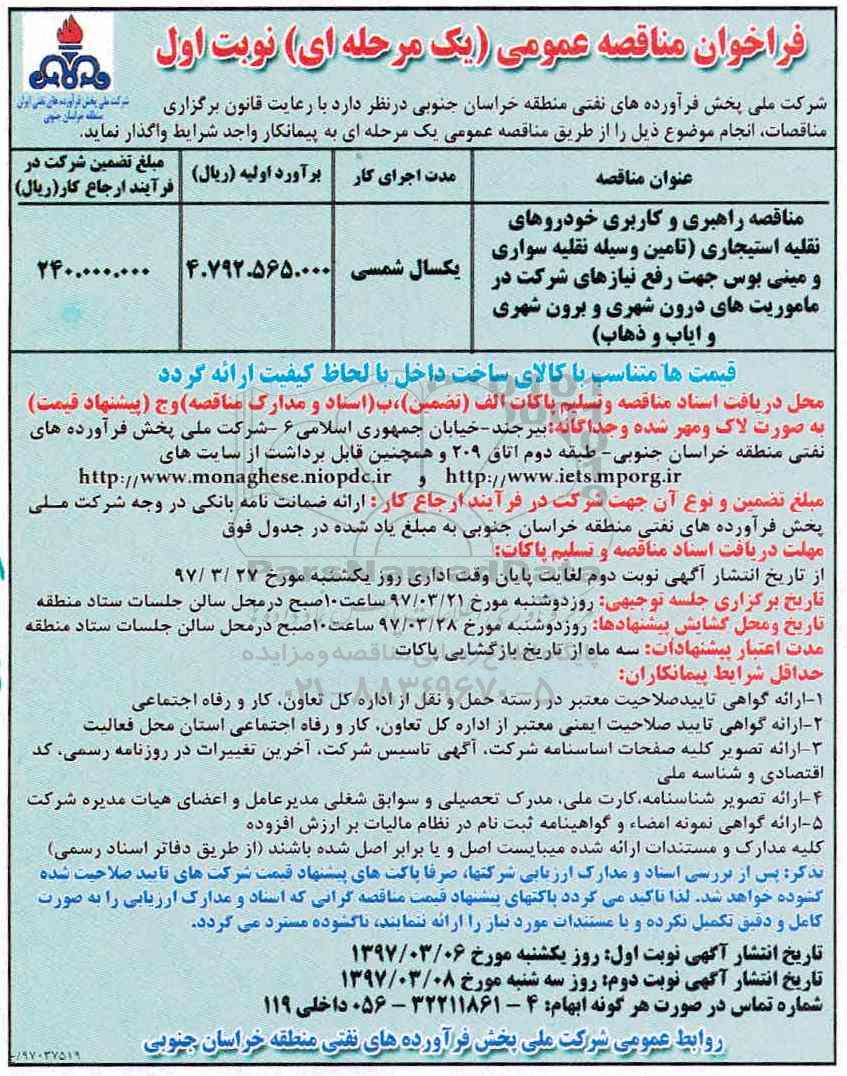 فراخوان مناقصه عمومی (یک مرحله ای) نوبت اول
شرکت ملی پخش فرآورده های نفتی ایران
منطقه خراسان جنوبی
شرکت ملی پخش فرآورده های نفتی منطقه خراسان جنوبی درنظر دارد با رعایت قانون برگزاری
مناقصات، انجام موضوع ذیل را از طریق مناقصه عمومی یک مرحله ای به پیمانکار واجد شرایط واگذار نماید.
عنوان مناقصه
مدت اجرای کار
برآورد اولیه (ریال)
مبلغ تضمین شرکت در
فرآیند ارجاع کار(ریال)
مناقصه راهبری و کاربری خودروهای
نقلیه استیجاری (تامین وسیله نقلیه سواری
و مینی بوس جهت رفع نیازهای شرکت در
ماموریت های درون شهری و برون شهری
و ایاب و ذهاب)
یکسال شمسی
۴.۷۹۲.۵۶۵.۰۰۰
۲۴۰.۰۰۰.۰۰۰
قیمت ها متناسب با کالای ساخت داخل با لحاظ کیفیت ارائه گردد
محل دریافت اسناد مناقصه وتسلیم پاکات الف (تضمین)،ب(اسناد و مدارک مناقصه)وج (پیشنهاد قیمت)
به صورت لاک ومهر شده وجداگانه:بیرجند-خیابان جمهوری اسلامی۶ -شرکت ملی پخش فرآورده های
نفتی منطقه خراسان جنوبی- طبقه دوم اتاق ۲۰۹ و همچنین قابل برداشت از سایت های
http://www.iets.mporg.ir و http://www.monaghese.niopdc.ir
مبلغ تضمین و نوع آن جهت شرکت در فرآیند ارجاع کار : ارائه ضمانت نامه بانکی در وجه شرکت ملی
پخش فرآورده های نفتی منطقه خراسان جنوبی به مبلغ یاد شده در جدول فوق
مهلت دریافت اسناد مناقصه و تسلیم پاکات:
از تاریخ انتشار آگهی نوبت دوم لغایت پایان وقت اداری روز یکشنبه مورخ ۲۷ /۳ /۹۷
تاریخ برگزاری جلسه توجیهی: روزدوشنبه مورخ ۹۷/۰۳/۲۱ ساعت۱۰صبح درمحل سالن جلسات ستاد منطقه
تاریخ ومحل گشایش پیشنهادها: روزدوشنبه مورخ ۹۷/۰۳/۲۸ ساعت۱۰صبح درمحل سالن جلسات ستاد منطقه
مدت اعتبار پیشنهادات: سه ماه از تاریخ بازگشایی پاکات
حداقل شرایط پیمانکاران:
۱-ارائه گواهی تاییدصلاحیت معتبر در رسته حمل و نقل از اداره کل تعاون، کار و رفاه اجتماعی
۲-ارائه گواهی تایید صلاحیت ایمنی معتبر از اداره کل تعاون، کار و رفاه اجتماعی استان محل فعالیت
۳-ارائه تصویر کلیه صفحات اساسنامه شرکت، آگهی تاسیس شرکت، آخرین تغییرات در روزنامه رسمی، کد
اقتصادی و شناسه ملی
۴-ارائه تصویر شناسنامه،کارت ملی، مدرک تحصیلی و سوابق شغلی مدیرعامل و اعضای هیات مدیره شرکت
۵-ارائه گواهی نمونه امضاء و گواهینامه ثبت نام در نظام مالیات بر ارزش افزوده
کلیه مدارک و مستندات ارائه شده میبایست اصل و یا برابر اصل شده باشند (از طریق دفاتر اسناد رسمی)
تذکر: پس از بررسی اسناد و مدارک ارزیابی شرکتها، صرفا پاکت های پیشنهاد قیمت شرکت های تایید صلاحیت شده
گشوده خواهد شد. لذا تاکید می گردد پاکتهای پیشنهاد قیمت مناقصه گرانی که اسناد و مدارک ارزیابی را به صورت
کامل و دقیق تکمیل نکرده و یا مستندات مورد نیاز را ارائه ننمایند، ناگشوده مسترد می گردد.
تاریخ انتشار آگهی نوبت اول: روز یکشنبه مورخ ۱۳۹۷/۰۳/۰۶
تاریخ انتشار آگهی نوبت دوم: روز سه شنبه مورخ ۱۳۹۷/۰۳/۰۸
شماره تماس در صورت هر گونه ابهام: ۴ - ۳۲۲۱۱۸۶۱ - ۰۵۶ داخلی ۱۱۹
روابط عمومی شرکت ملی پخش فرآورده های نفتی منطقه خراسان جنوبی
۹۷۰۳۷۵۱۹/
ParsNamadData
۰۲۱-۸۸۳۴۹۶۷۰-۵